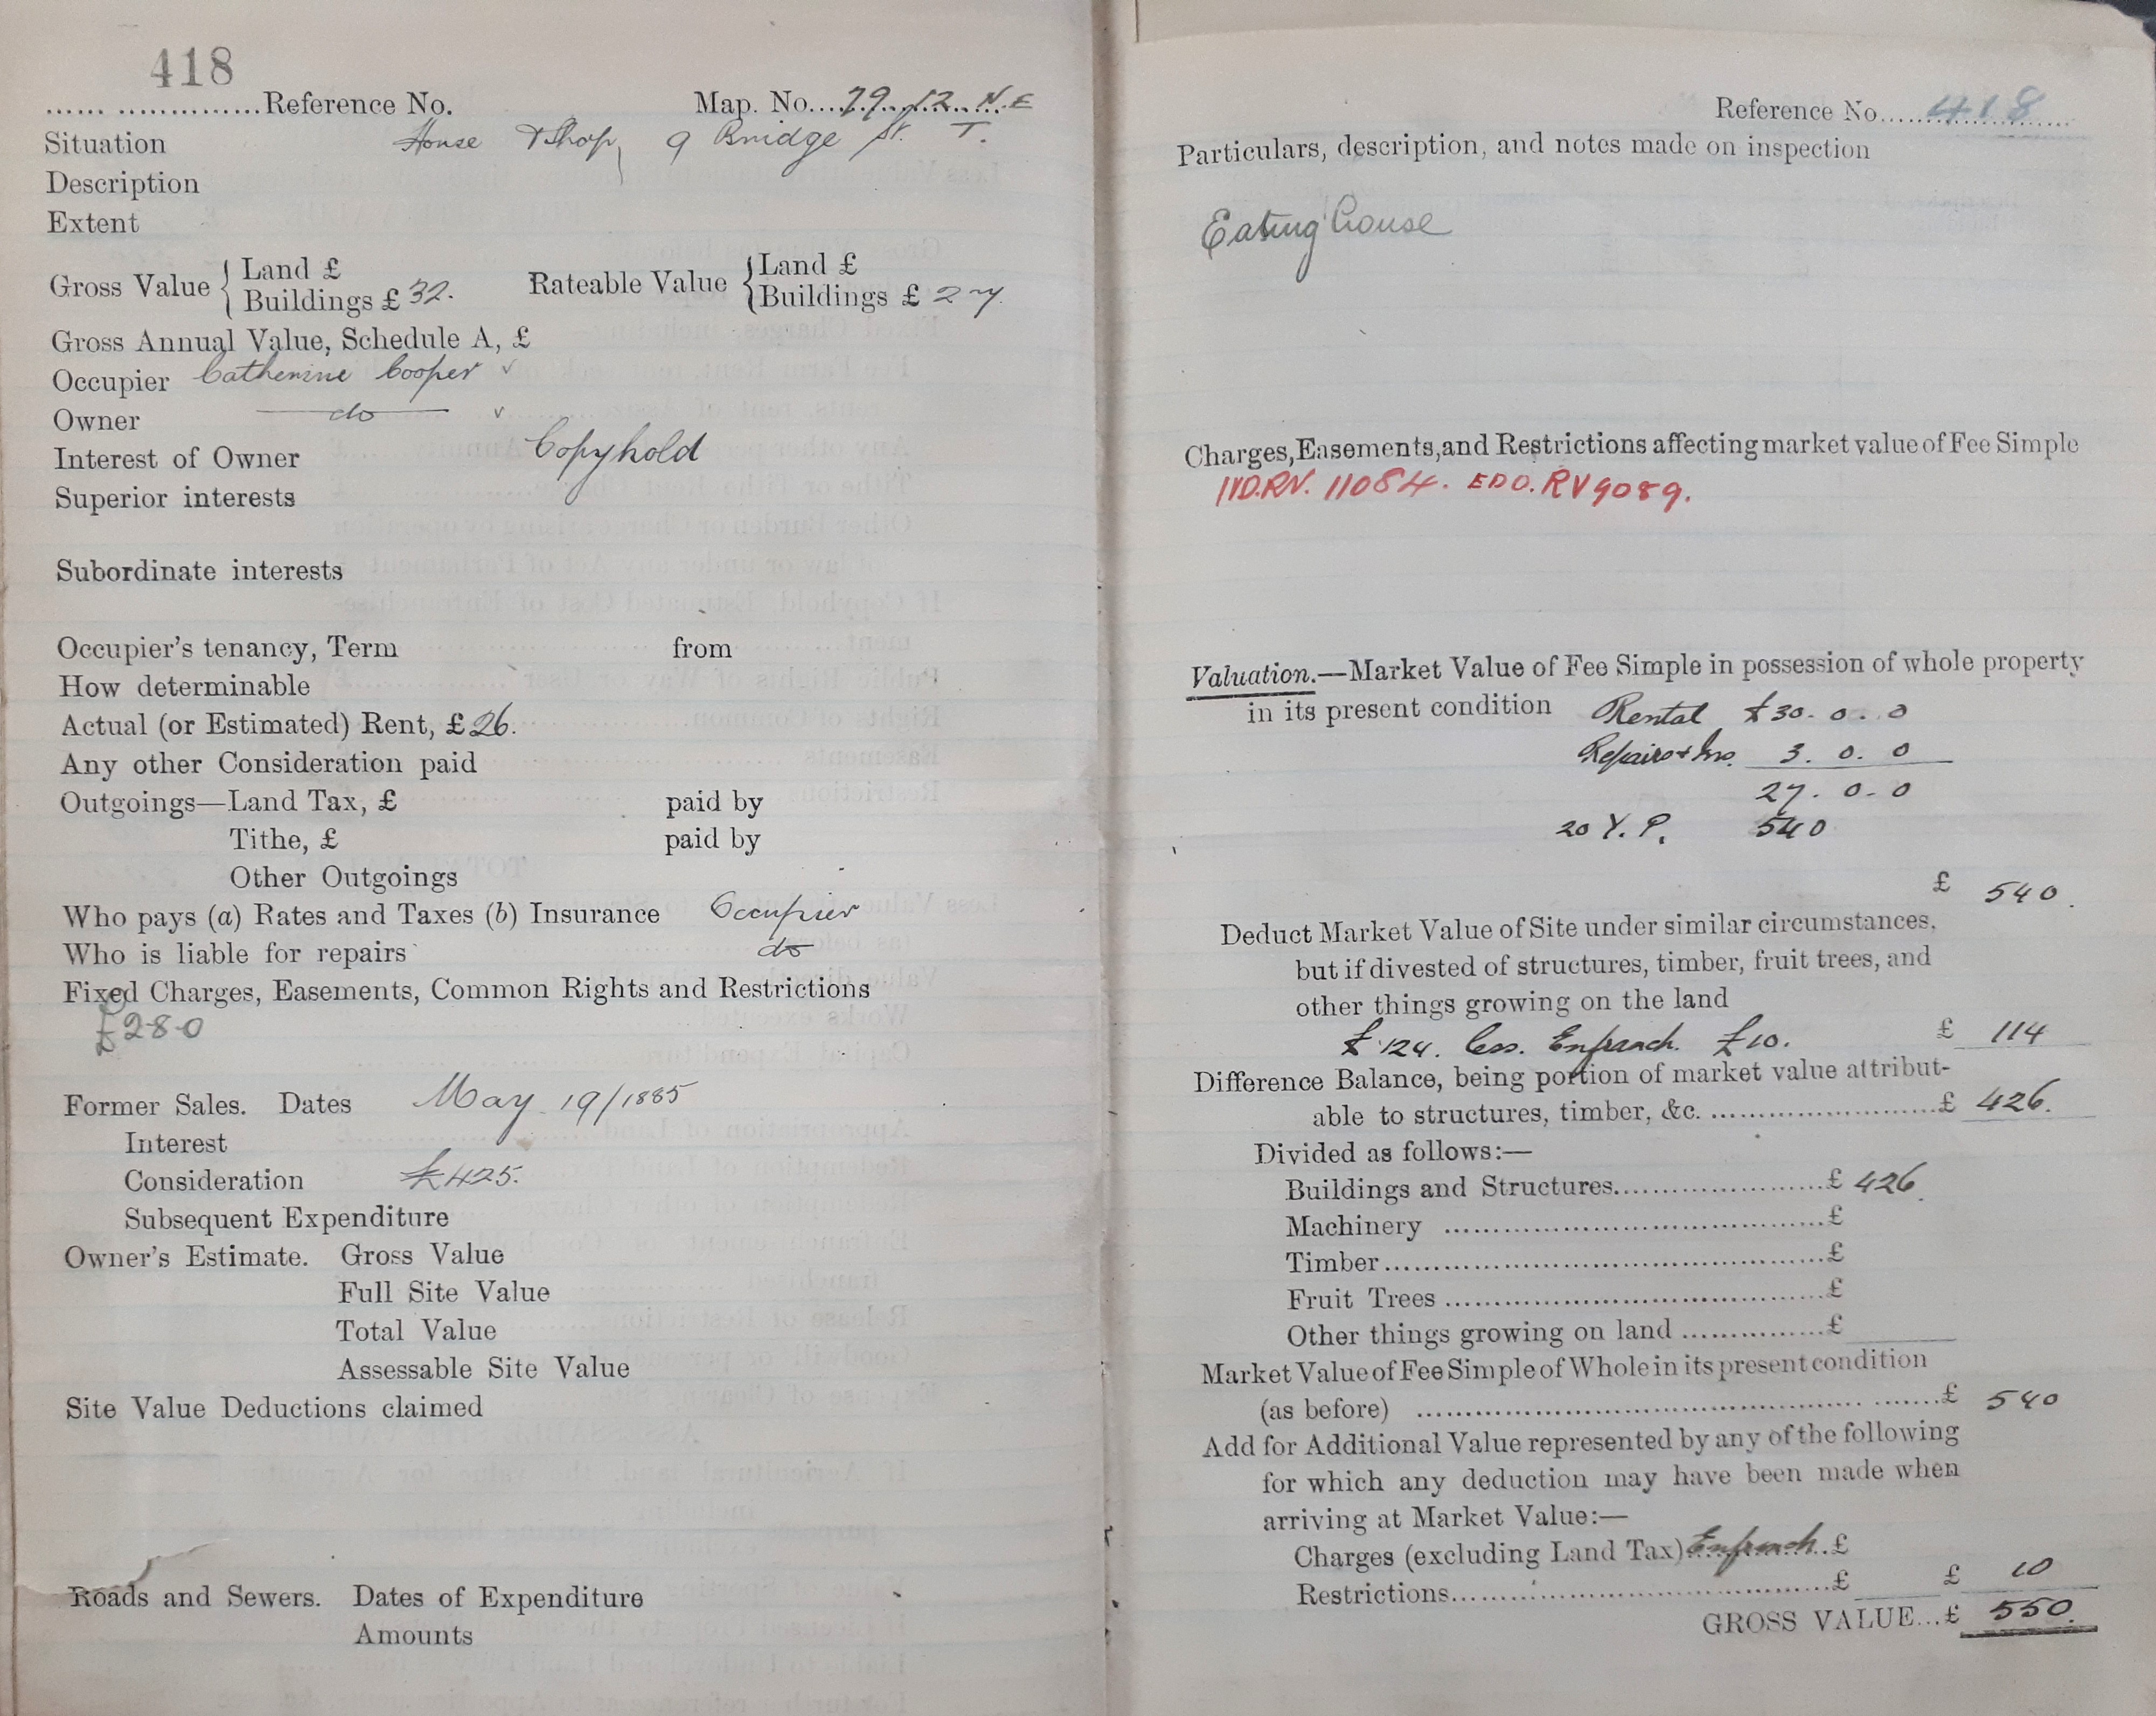 418
...... ..............Reference No. Map. No....79.12.N.E
Situation House & Shop, 9 Bridge St. T.
Description
Extent
Gross Value { Land £
Buildings £ 32. Rateable Value { Land £
Buildings £ 27
Gross Annual Value, Schedule A, £
Occupier Catherine Cooper ✓
Owner do ✓
Interest of Owner Copyhold
Superior interests
Subordinate interests
Occupier's tenancy, Term from
How determinable
Actual (or Estimated) Rent, £ 26.
Any other Consideration paid
Outgoings—Land Tax, £ paid by
Tithe, £ paid by
Other Outgoings
Who pays (a) Rates and Taxes (b) Insurance Occupier
Who is liable for repairs do
Fixed Charges, Easements, Common Rights and Restrictions
£280
Former Sales. Dates May 19/1885
Interest
Consideration £425.
Subsequent Expenditure
Owner's Estimate. Gross Value
Full Site Value
Total Value
Assessable Site Value
Site Value Deductions claimed
Roads and Sewers. Dates of Expenditure
Amounts
Reference No.....418
Particulars, description, and notes made on inspection
Eating house
Charges, Easements, and Restrictions affecting market value of Fee Simple
11084. EDO. RV 9089.
Valuation.—Market Value of Fee Simple in possession of whole property
in its present condition Rental £30. 0. 0
Repairs & Ins. 3. 0. 0
27. 0. 0
20 Y. P. 540
£ 540.
Deduct Market Value of Site under similar circumstances,
but if divested of structures, timber, fruit trees, and
other things growing on the land
£124. less. Enfranch. £10. £ 114
Difference Balance, being portion of market value attribut-
able to structures, timber, &c. ........................£ 426.
Divided as follows:—
Buildings and Structures......................£ 426.
Machinery ........................................£
Timber..............................................£
Fruit Trees ........................................£
Other things growing on land ...............£
Market Value of Fee Simple of Whole in its present condition
(as before) ..............................................£ 540
Add for Additional Value represented by any of the following
for which any deduction may have been made when
arriving at Market Value:—
Charges (excluding Land Tax) Enfranch..£
Restrictions.......................................£ £ 10
GROSS VALUE...£ 550.